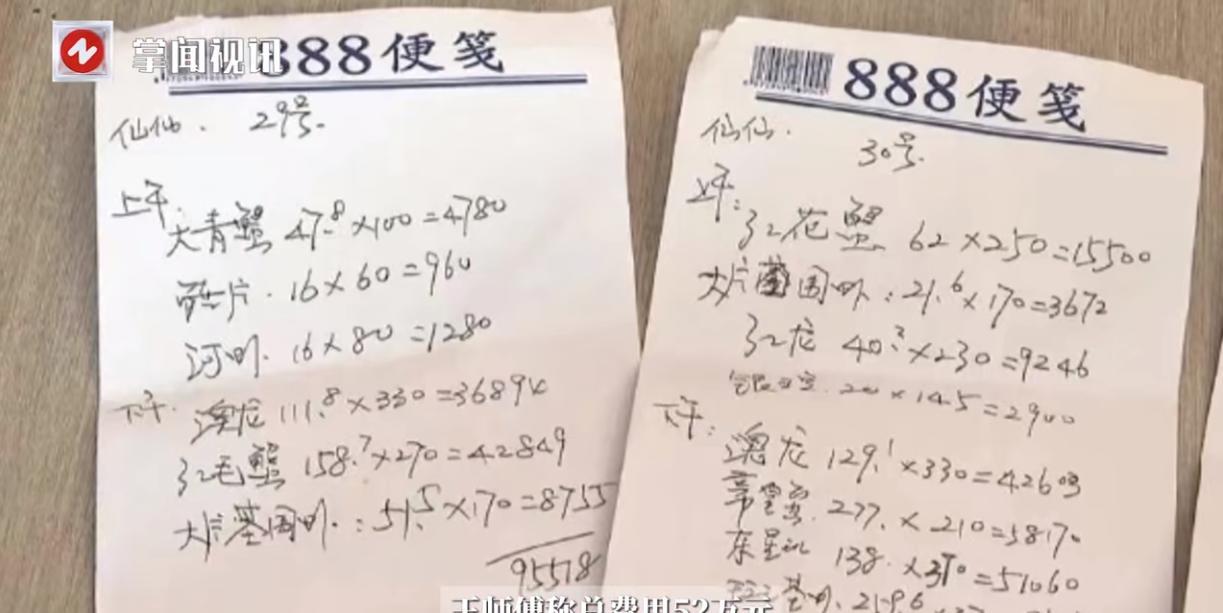 掌闻视讯
888便笺
仙仙. 29号.
上午
大青蟹 47.8×100=4780
片. 16×60=960
河虾. 16×80=1280
下午. 澳龙 111.8×330=36894
红毛蟹 158.7×270=42849
大片基围虾.: 51.5×170=8755
95518
888便笺
仙仙. 30号.
上午:
红花蟹 62×250=15500
大片基围虾: 21.6×170=3672
红龙 40.2×230=9246
20×145=2900
下午:
澳龙 129.1×330=42603
277.×210=58170
东星斑 138.×370=51060
王师傅称总费用52万元